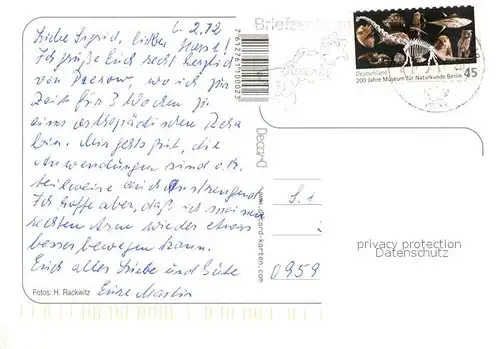 6.2.12
Liebe Sigrid, lieber Horst!
Ich grüße Euch recht herzlich
von Prerow, wo ich zur
Zeit für 3 Wochen zu
einer orthopädischen Reha
bin. Mir geht's gut, die
Anwendungen sind o.k.
teilweise auch anstrengend.
Ich hoffe aber, daß ich meinen
rechten Arm wieder etwas
besser bewegen kann.
Euch alles Liebe und Gute
Eure
Fotos: H. Rackwitz
7612671100023
Decard
www.decard-karten.com
Briefzentrum
Deutschland
200 Jahre Museum für Naturkunde Berlin
45
S. 1
0959
privacy protection
Datenschutz